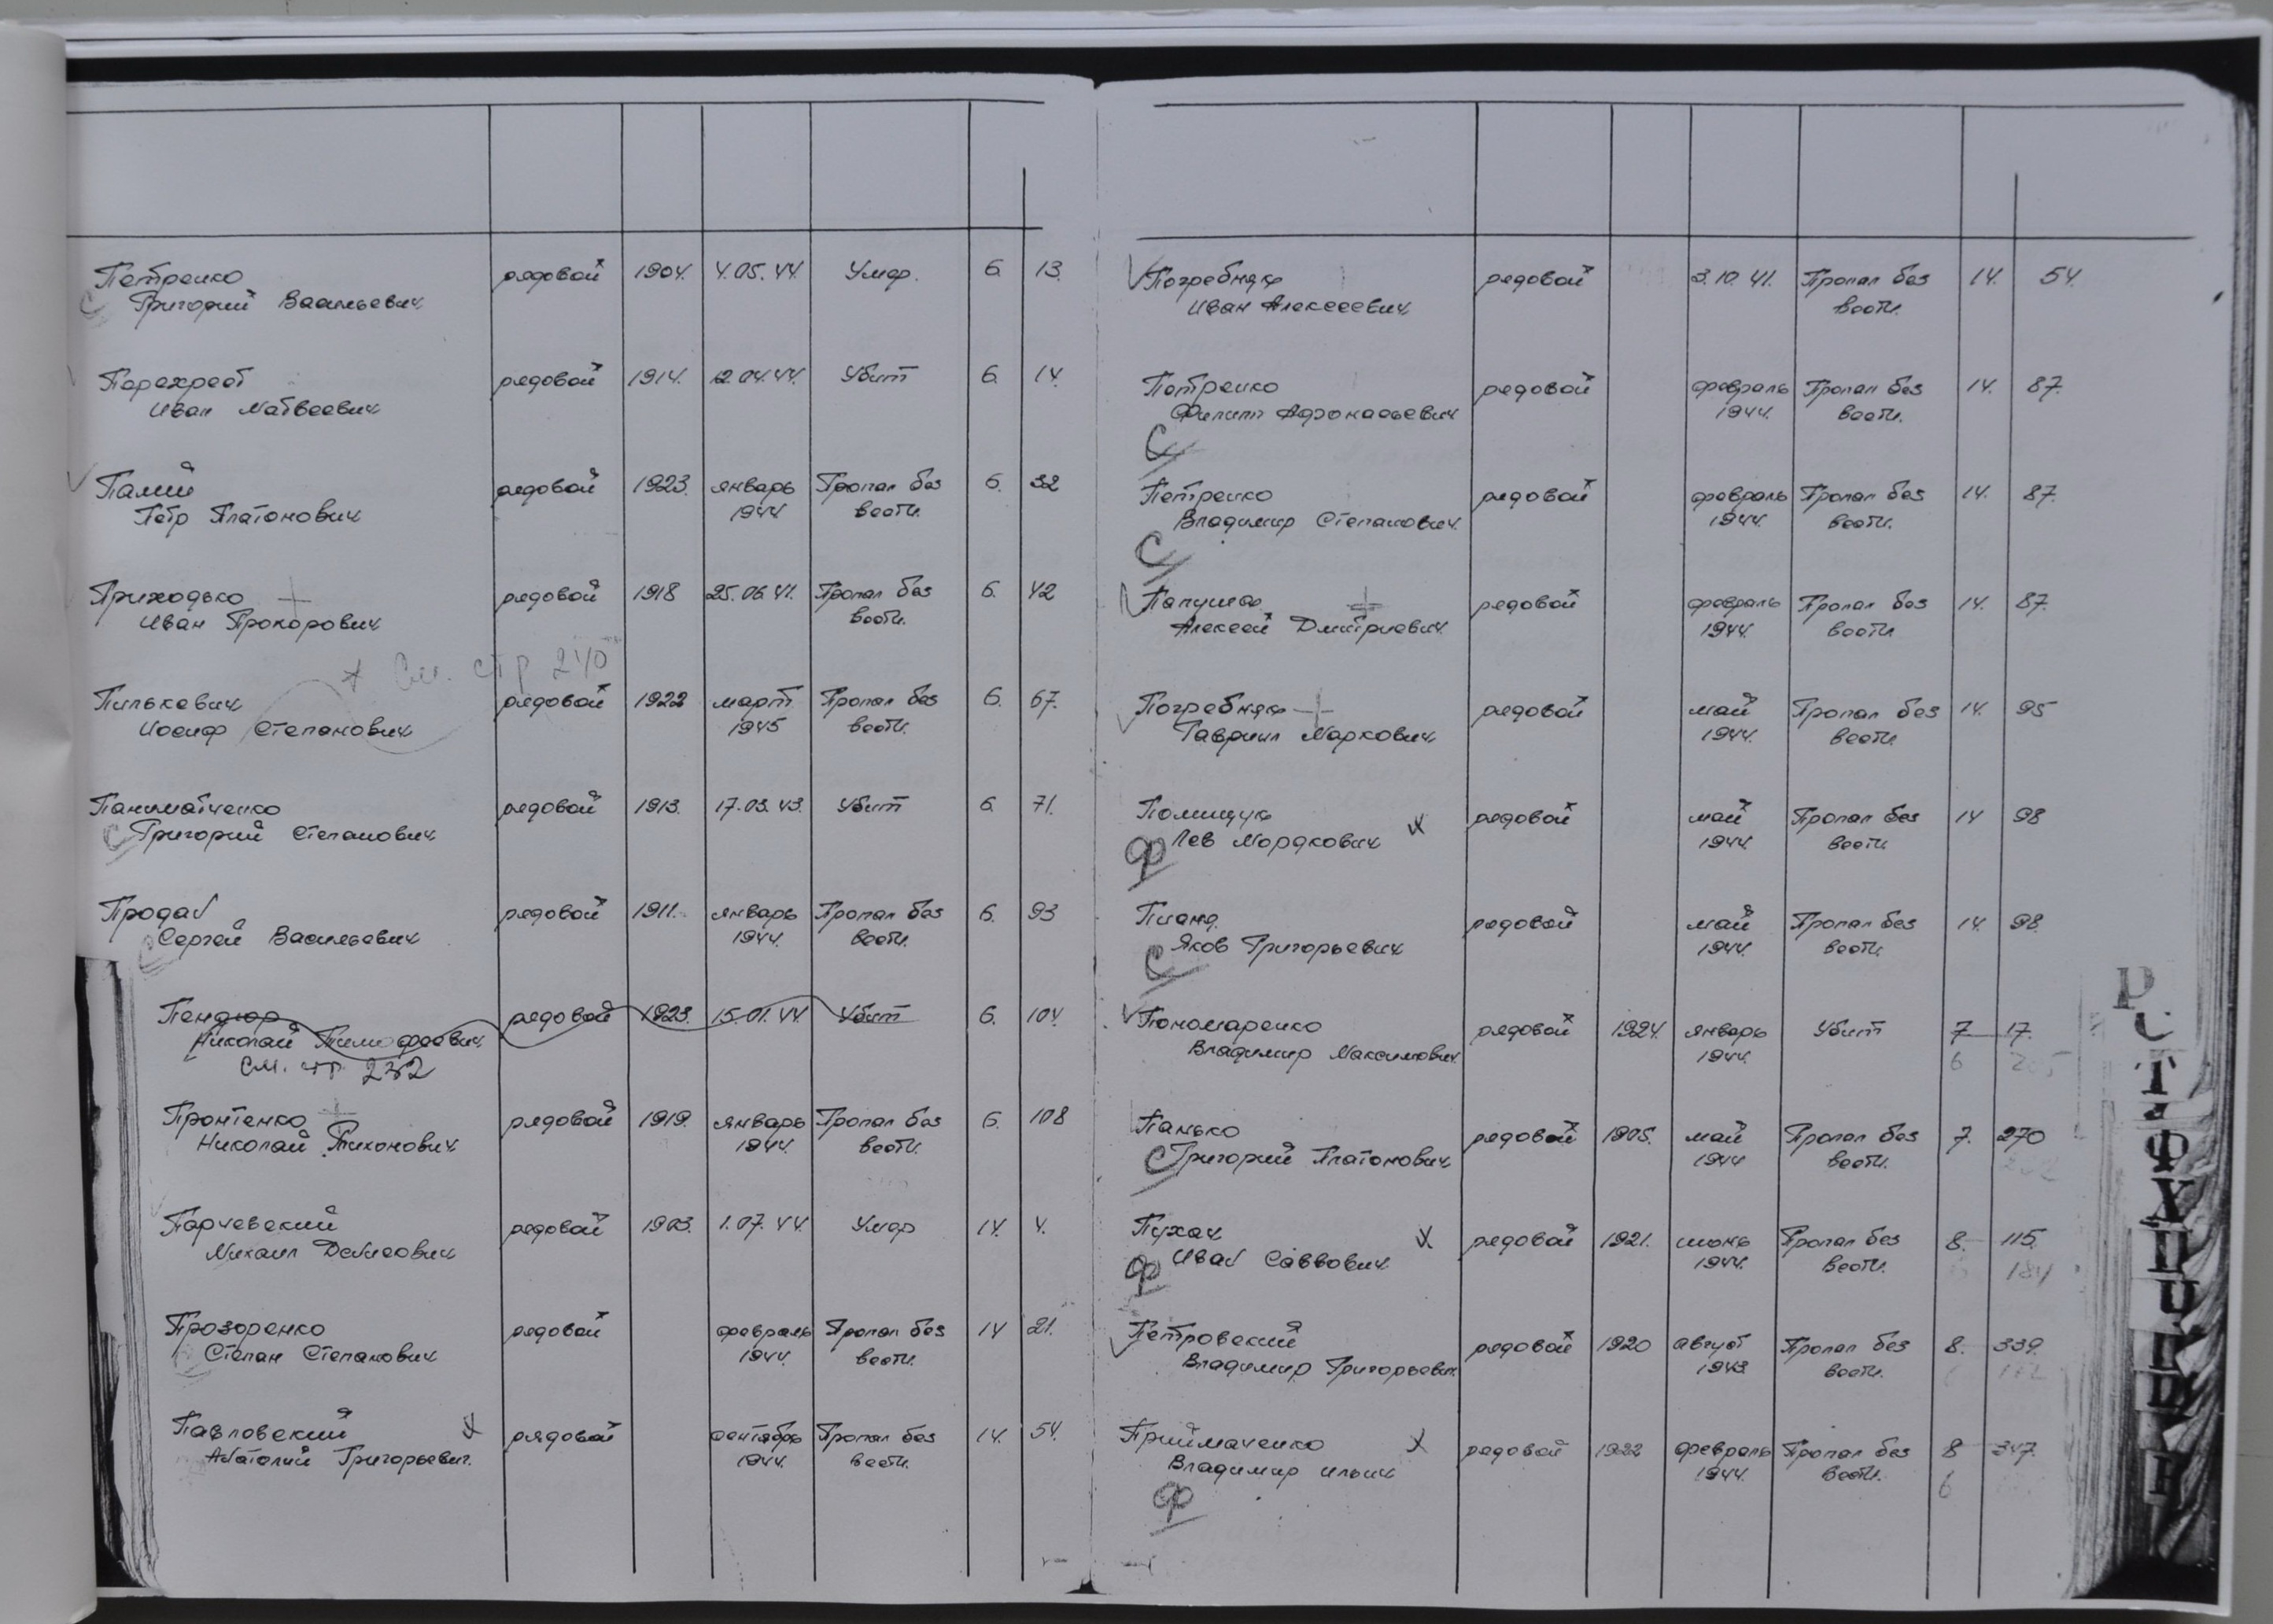 Петренко рядовой 1904. 4.05.44. Умер. 6. 13.
С Григорий Васильевич
Перехрест рядовой 1914. 12.04.44. Убит 6. 14.
Иван Матвеевич
Палий рядовой 1923. январь Пропал без 6. 32
Петр Платонович 1944. вести.
Приходько рядовой 1918 25.06.41. Пропал без 6. 42
Иван Прохорович вести.
См. стр 240
Пилькевич рядовой 1922 март Пропал без 6. 67.
Иосиф Степанович 1945 вести.
Паниматченко рядовой 1913. 17.03.43. Убит 6. 71.
С Григорий Степанович
Продан рядовой 1911. январь Пропал без 6. 93
С Сергей Васильевич 1944. вести.
Пендюр рядовой 1923. 15.01.44. Убит 6. 104.
Николай Тимофеевич
См. стр. 232
Пронтенко рядовой 1919. январь Пропал без 6. 108
Николай Тихонович 1944. вести.
Парчевский рядовой 1903. 1.07.44. Умер 14. 4.
Михаил Денисович
Прозоренко рядовой февраль Пропал без 14 21.
Степан Степанович 1944. вести.
Павловский рядовой сентябрь Пропал без 14. 54.
Анатолий Григорьевич. 1944. вести.
Погребняк рядовой 3.10.41. Пропал без 14. 54.
Иван Алексеевич вести.
Петренко рядовой февраль Пропал без 14. 87.
Филипп Афонасьевич 1944. вести.
С
Петренко рядовой февраль Пропал без 14. 87.
Владимир Степанович 1944. вести.
С
Папушак рядовой февраль Пропал без 14. 87.
Алексей Дмитриевич 1944. вести
Погребняк рядовой май Пропал без 14. 95
Гавриил Маркович 1944. вести
Полищук рядовой май Пропал без 14 98
Ф Лев Мордкович 1944. вести
Пианд рядовой май Пропал без 14. 98.
С Яков Григорьевич 1944. вести.
Пономаренко рядовой 1924. январь Убит 7 17.
Владимир Максимович 1944. 6
Панько рядовой 1905. май Пропал без 7. 270
С Григорий Платонович 1944 вести.
Пухач рядовой 1921. июнь Пропал без 8. 115.
Ф Иван Саввович 1944. вести. 184
Петровский рядовой 1920 август Пропал без 8. 339.
Владимир Григорьевич 1943 вести.
Приймаченко рядовой 1922 февраль Пропал без 8 347.
Владимир Ильич 1944. вести. 6
Ф
Р
С
Т
Ф
Х